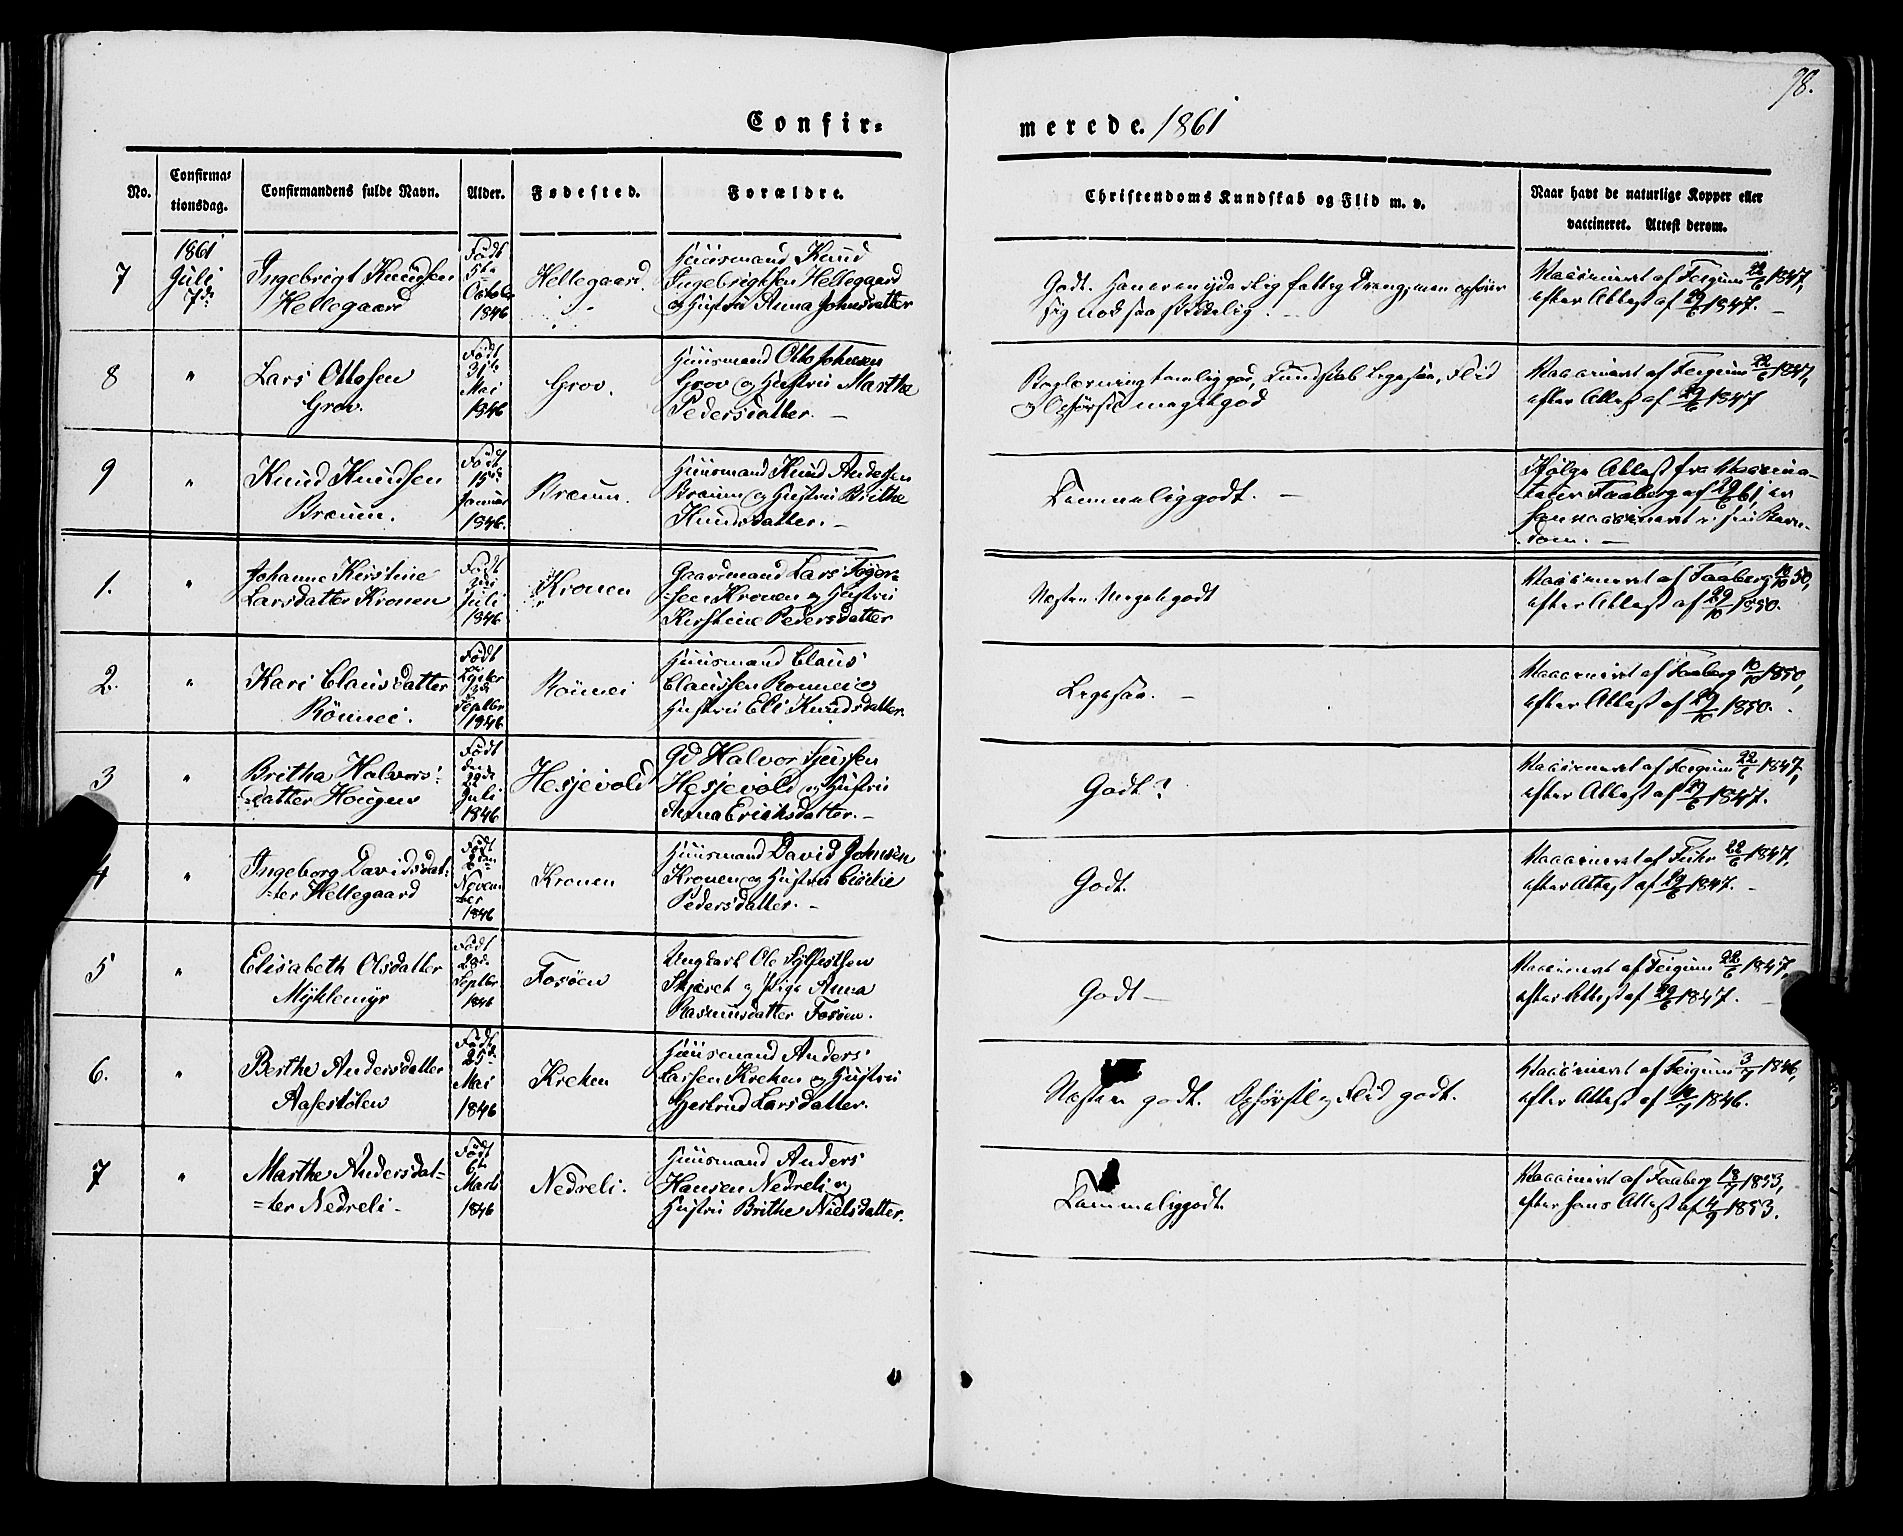 78.
Confir-
merede. 1861
No.
Confirma-
tionsdag.
Confirmandens fulde Navn.
Alder.
Fødested.
Forældre.
Christendoms Kundskab og Flid m. v.
Naar havt de naturlige Kopper eller
vaccineret. Attest derom.
7
1861
Juli
7de
Ingebrigt Knudsen
Hellegaard
Født
5te
Octobr
1846
Hellegaard
Huusmand Knud
Ingebrigtsen Hellegaard
og Hustru Anna Johnsdatter
Godt. Han er en
fattig Dreng, men opfører
sig
Vaccineret af Feigum 22/6 1847,
efter Attest af 29/6 1847.
8
"
Lars Ottosen
Grov.
Født
31te
Mai
1846
Grov.
Huusmand Otto Johnsen
Grov og Hustru Martha
Pedersdatter. —
temlig god, Kundskab Ligesaa, Flid
og Opførsel meget god
Vaccineret af Feigum 22/6 1847,
efter Attest af 29/6 1847
9
"
Knud Knudsen
Bræuen.
Født
15de
Januar
1846.
Bræuen.
Huusmand Knud Andersen
Bræuen og Hustru Brithe
Knudsdatter. —
Temmelig godt. —
Ifølge Attest fra Vaccina-
teur Faaberg af 29/6 61 er
han vaccineret i sin Barn-
dom. —
1.
"
Johanne Kirstine
Larsdatter Kronen
Født
Juli
1846
Kronen
Gaardmand Lars Foger-
-sen Kronen og Hustru
Kirstine Pedersdatter
Næsten Meget godt
Vaccineret af Faaberg 50,
efter Attest af 29/10 1850.
2.
"
Kari Clausdatter
Rönnei.
Født
i
Lyster
Septbr
1846
Rönnei
Huusmand Claus
Claussen Ronnei og
Hustru Eli Knudsdatter.
Ligesaa. —
Vaccineret af Faaberg 10/10 1850,
efter Attest af 29/10 1850.
3
"
Britha Halvors-
-datter Hougen
Født
den
29de
Juli
1846
Hesjevold
Gd Halvor Sjursen
Hesjevold og Hustru
Anna Eriksdatter. —
Godt?
Vaccineret af Feigum 22/6 1847,
efter Attest af 29/6 1847.
4
"
Ingeborg Davidsdat-
-ter Hellegaard
Født
Novem-
-ber
1846
Kronen
Huusmand David Johnsen
Kronen og Hustru Cicilie
Pedersdatter. —
Godt.
Vaccineret af Fuhr 22/6 1847,
efter Attest af 29/6 1847. —
5
"
Elisabeth Olsdatter
Myklemyr
Født
28de
Septbr
1846
Fosøen
Ungkarl Ole Sylfestsen
Skjæret og Pige Anna
Rasmusdatter Fosøen.
Godt —
Vaccineret af Feigum 22/6 1847,
efter Attest af 29/6 1847. —
6.
"
Berthe Andersdatter
Aasestølen
Født
25de
Mai
1846
Kreken
Huusmand Anders
Larsen Kreken og Hustru
Gjertrud Larsdatter.
Næsten godt. Opførsel og Flid godt.
Vaccineret af Feigum 3/7 1846,
efter Attest af 1846.
7
"
Marthe Andersdat-
-ter Nedreli.
Født
6te
Marts
1846
Nedreli.
Huusmand Anders
Hansen Nedreli og
Hustru Brithe Nielsdatter.
Temmelig godt.
Vaccineret af Faaberg 1853,
efter hans Attest af 4/9 1853.